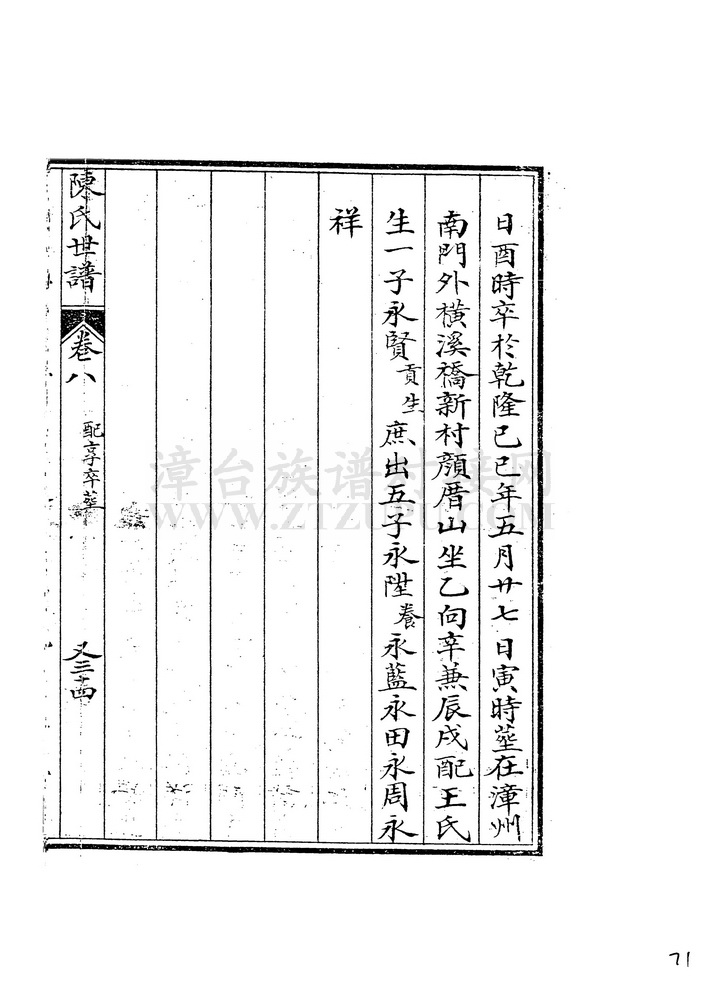 日酉時卒於乾隆己巳年五月廿七日寅時塟在漳州
南門外橫溪橋新村顏厝山坐乙向辛兼辰戌配王氏
生一子永賢貢生庶出五子永陞養永藍永田永周永
祥
陳氏世譜
卷八
配享卒塟
又三十四
漳台族谱对接网
WWW.ZTZUPU.COM
71